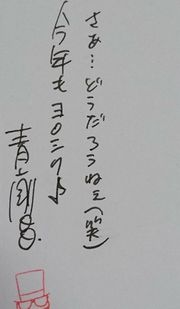 さあ…どうだろうねぇ(笑)
今年もヨロシク♪
青剛昌